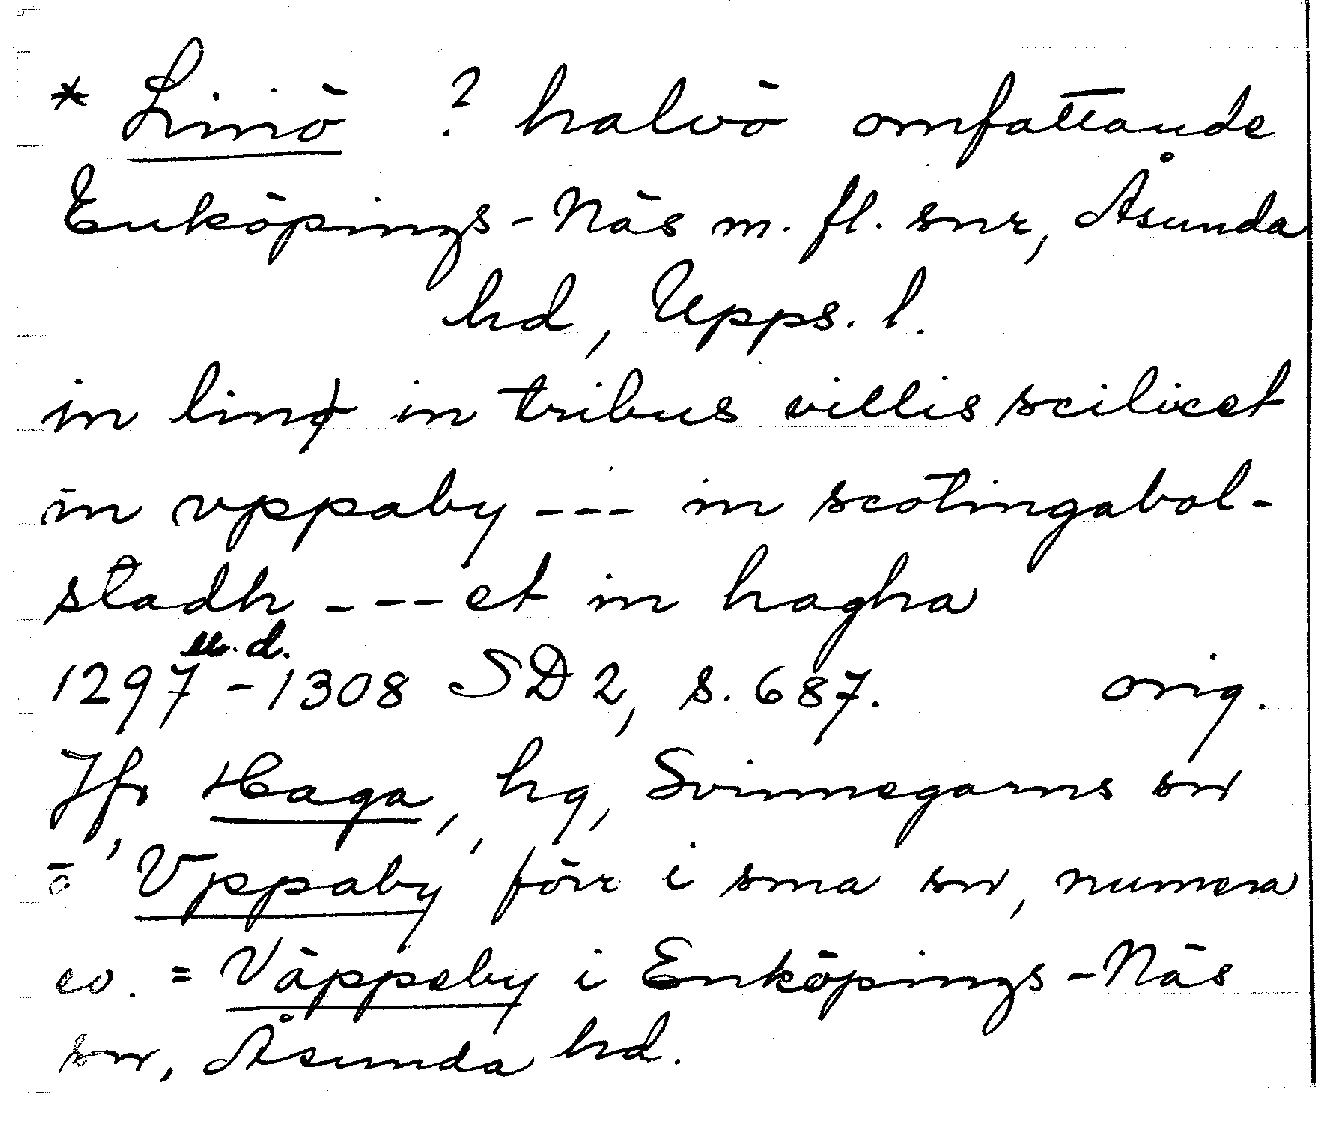 * Linö ? halvö omfattande
Enköpings-Näs m. fl. snr, Åsunda
hd, Upps. l.
in linø in tribus villis scilicet
in vppaby --- in scotingabol-
stadh --- et in hagha
u. d.
1297 - 1308 SD 2, s. 687. orig.
Jfr Haga, hg, Svinnegarns sn
o, Vppaby förr i sma sn, numera
ev. = Väppeby i Enköpings-Näs
sn, Åsunda hd.